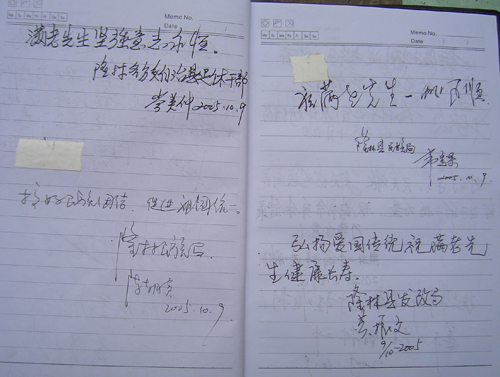 Memo No.
Date
满老先生坚强意志永恒。
隆林各族自治县退休干部
2005.10.9
搞好民族团结，促进祖国统一。
隆林民族局
2005.10.9
Memo No.
Date
祝满老先生一帆风顺
隆林县民族局
2005.10.9
弘扬爱国传统祝满老先
生健康长寿。
隆林县发改局
黄振文
9/10-2005